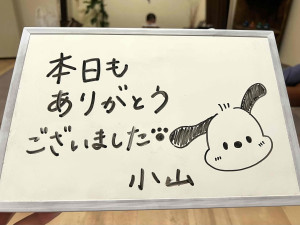 本日も
ありがとう
ございました
小山